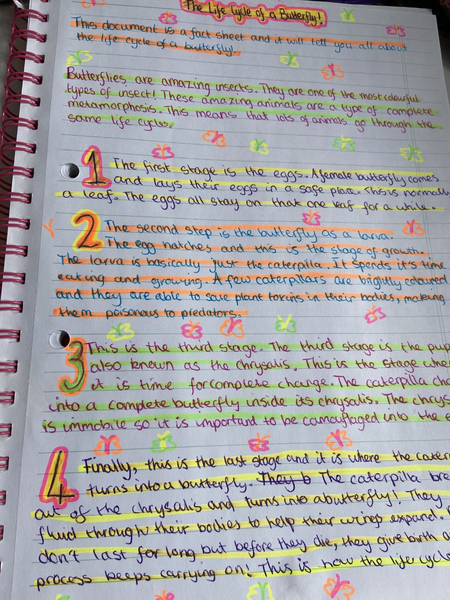 The Life Cycle of a Butterfly!
This document is a fact sheet and it will tell you all about
the life cycle of a butterfly!
Butterflies are amazing insects. They are one of the most colourful
types of insect! These amazing animals are a type of complete
metamorphosis. This means that lots of animals go through the
same life cycles.
1 The first stage is the eggs. A female butterfly comes
and lays their eggs in a safe place. This is normally
a leaf. The eggs all stay on that one leaf for a while.
2 The second step is the butterfly as a larva.
The egg hatches and this is the stage of growth.
The larva is basically just the caterpilla. It spends it's time
eating and growing. A few caterpillars are brightly coloured
and they are able to save plant toxins in their bodies, making
them poisonous to predators.
3 This is the third stage. The third stage is the pup
also known as the chrysalis. This is the stage when
it is time for complete change. The caterpilla cha
into a complete butterfly inside its chrysalis. The chrys
is immobile so it is important to be camouflaged into the e
4 Finally, this is the last stage and it is where the cater
turns into a butterfly. They b The caterpilla bre
out of the chrysalis and turns into a butterfly! They
fluid through their bodies to help their wings expand.
don't last for long but before they die, they give birth a
process keeps carrying on! This is how the life cycle